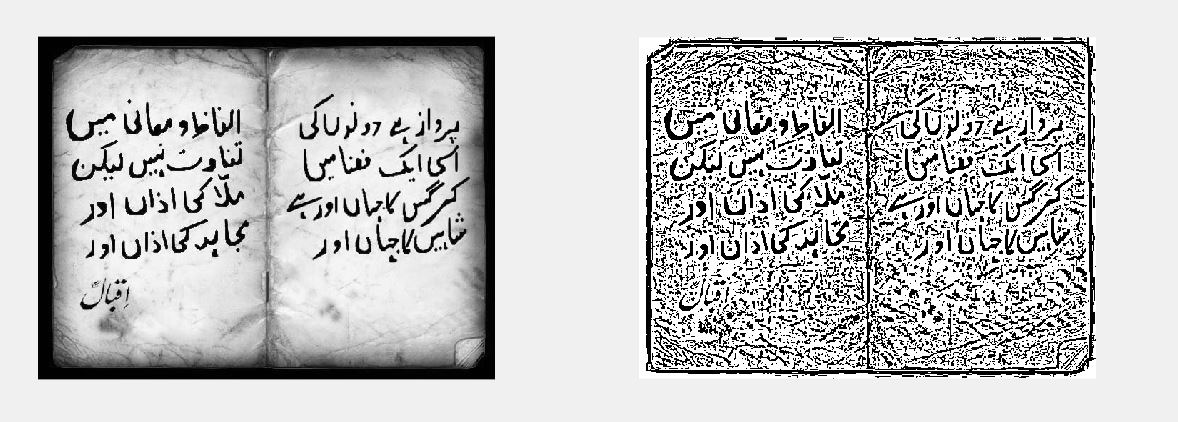 پرواز ہے دونوں کی
اسی ایک فضا میں
کرگس کا جہاں اور ہے
شاہیں کا جہاں اور
الفاظ و معانی میں
تفاوت نہیں لیکن
ملّا کی اذاں اور
مجاہد کی اذاں اور
اقبالؒ
پرواز ہے دونوں کی
اسی ایک فضا میں
کرگس کا جہاں اور ہے
شاہیں کا جہاں اور
الفاظ و معانی میں
تفاوت نہیں لیکن
ملّا کی اذاں اور
مجاہد کی اذاں اور
اقبال